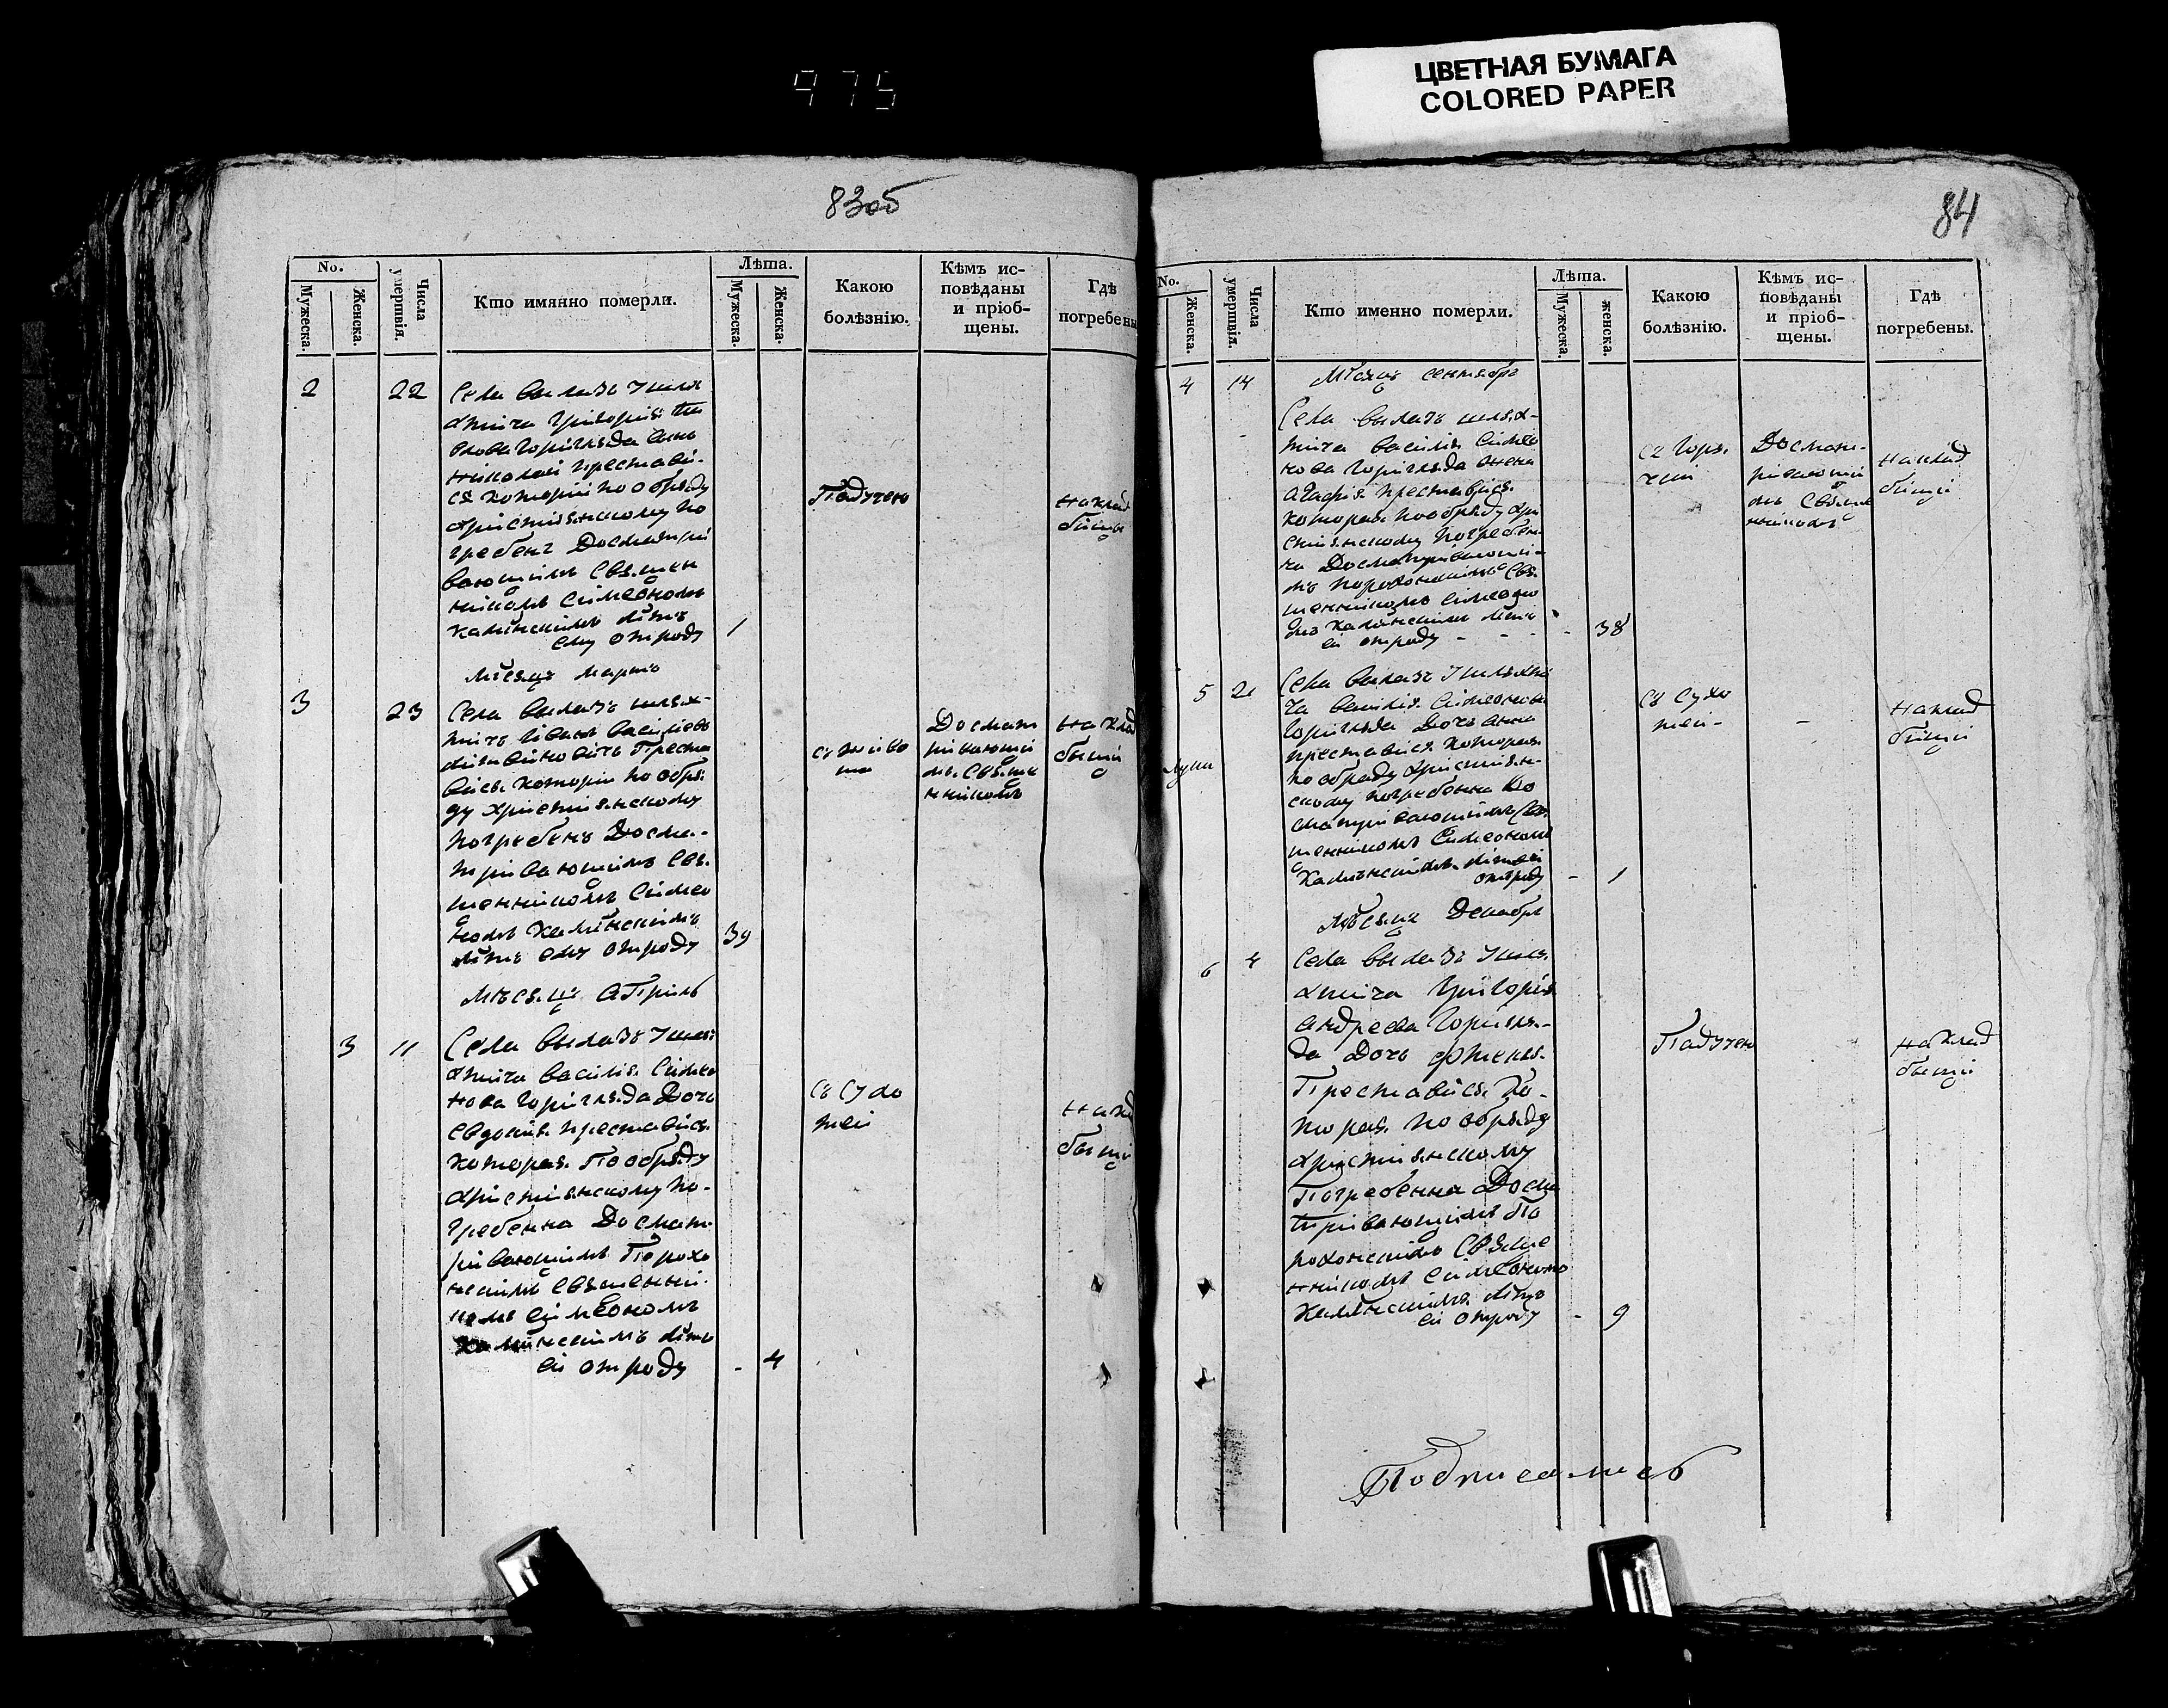 975
ЦВЕТНАЯ БУМАГА
COLORED PAPER
83об
No.
Мужеска.
Женска.
Числа умертвія.
Кто имянно померли.
Лѣта.
Мужеска.
Женска.
Какою болѣзнію.
Кѣмъ исповѣданы и пріобщены.
Где погребены
2
22
Села Вылазъ Шля
хтича Григорія
Горигляда Сынъ
Николай преставі
ся которій по обряду
христіянскому по
гребенъ Досматри
вающимъ Священ
никомъ Симеономъ
Калѣнскимъ лѣтъ
ему отроду
1
Падучею
на клад
бищи
Мѣсяцъ Мартъ
3
23
Села Вылазъ шлях
тичъ Іванъ Васіліевъ
Преста
вись которій по обря
ду христіянскому
погребенъ Досма
тривающимъ Свя
щенникомъ Симео
номъ Калѣнскимъ
лѣтъ ему отроду
39
Досмат
ривающи
мъ Свяще
нникомъ
на клад
быщи
Мѣсяцъ Апріль
3
11
Села Вылазъ Шля
хтича Василія Симео
нова Горигляда Дочъ
Евдокія преставись
которая по обряду
христіянскому по
гребенна Досмат
ривающимъ Порохо
нскимъ Священни
комъ Симеономъ
Калѣнскимъ лѣтъ
ей отроду
4
на клад
быщи
84
No.
Женска.
Числа умертвія.
Кто именно померли.
Лѣта.
Мужеска.
женска.
Какою болѣзнію.
Кѣмъ исповѣданы и пріобщены.
Гдѣ погребены.
4
14
Мѣсяцъ Сентябрь
Села Вылазъ шлях
тича Василія Симео
нова Горигляда жена
Агафія преставися
которая по обряду хри
стіянскому погребен
на Досматривающи
мъ Порохонскимъ Свя
щенникомъ Симеоно
мъ Калѣнскимъ лѣтъ
ей отроду
38
Съ Горя
чки
Досмат
ривающи
мъ Священ
никомъ
На клад
бищи
5
Села Вылазъ Шляхти
ча Василія Симеонова
Горигляда Дочъ Анна
преставися которая
по обряду христіян
скому погребенна До
сматривающимъ Свя
щенникомъ Симеономъ
Калѣнскимъ лѣтъ ей
отроду
1
На клад
бищи
Мѣсяцъ Декабрь
6
4
Села Вылазъ Шля
хтича Григорія
Андреева Горигля
да Дочъ
Преставися ко
торая по обряду
христіянскому
Погребенна Досма
тривающимъ По
рохонскимъ Свяще
нникомъ Симеономъ
Калѣнскимъ лѣтъ
ей отроду
9
Падучею
На клад
быщи